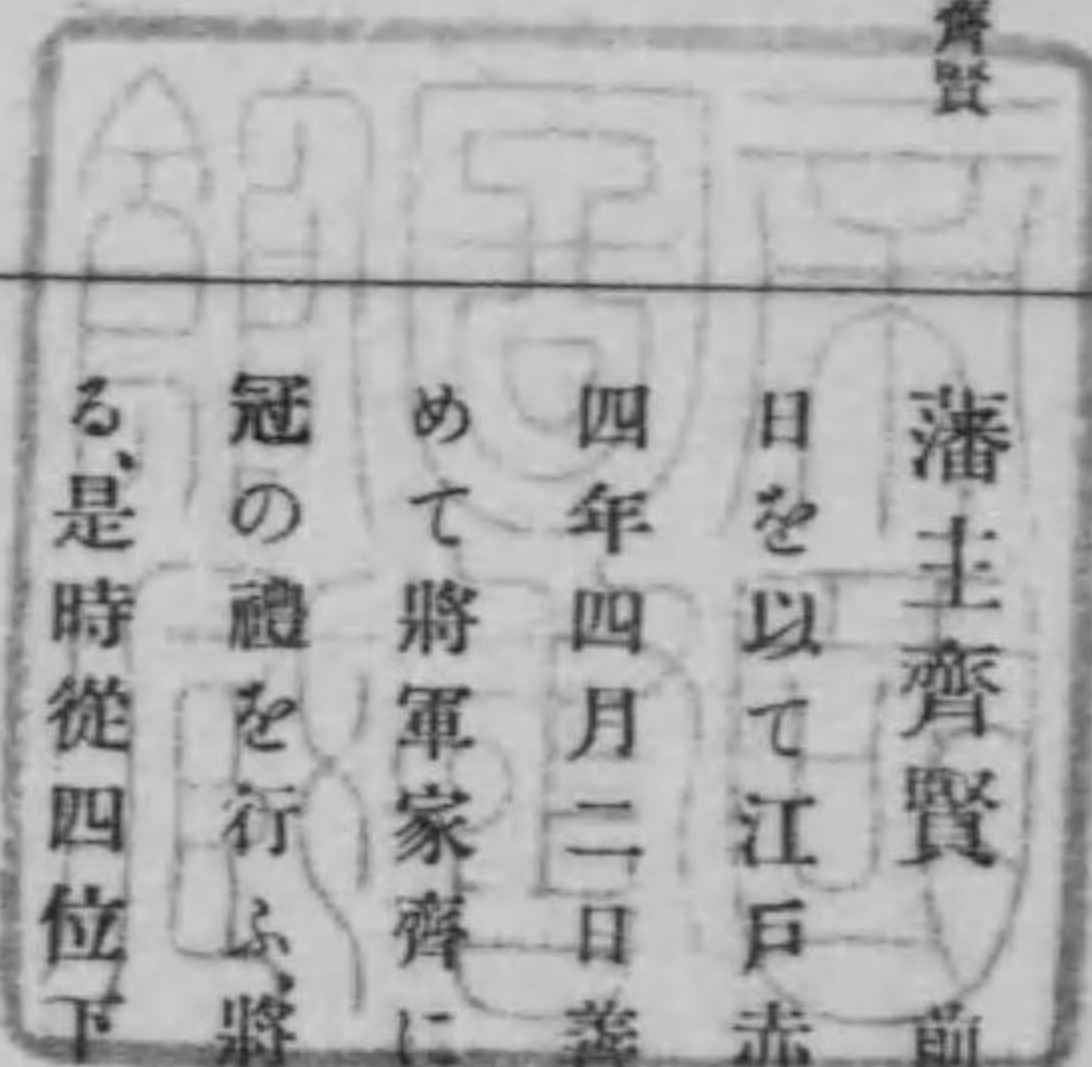 齊賢
藩主齊賢 前
日を以て江戸赤
四年四月二日善
めて將軍家齊に
冠の禮を行ふ、將
る、是時從四位下